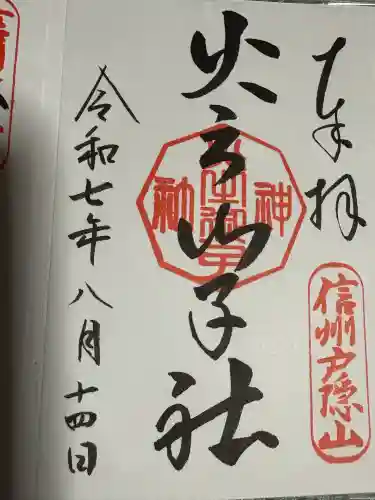 奉拝
信州戸隠山
火之御子社
神
令和七年八月十四日